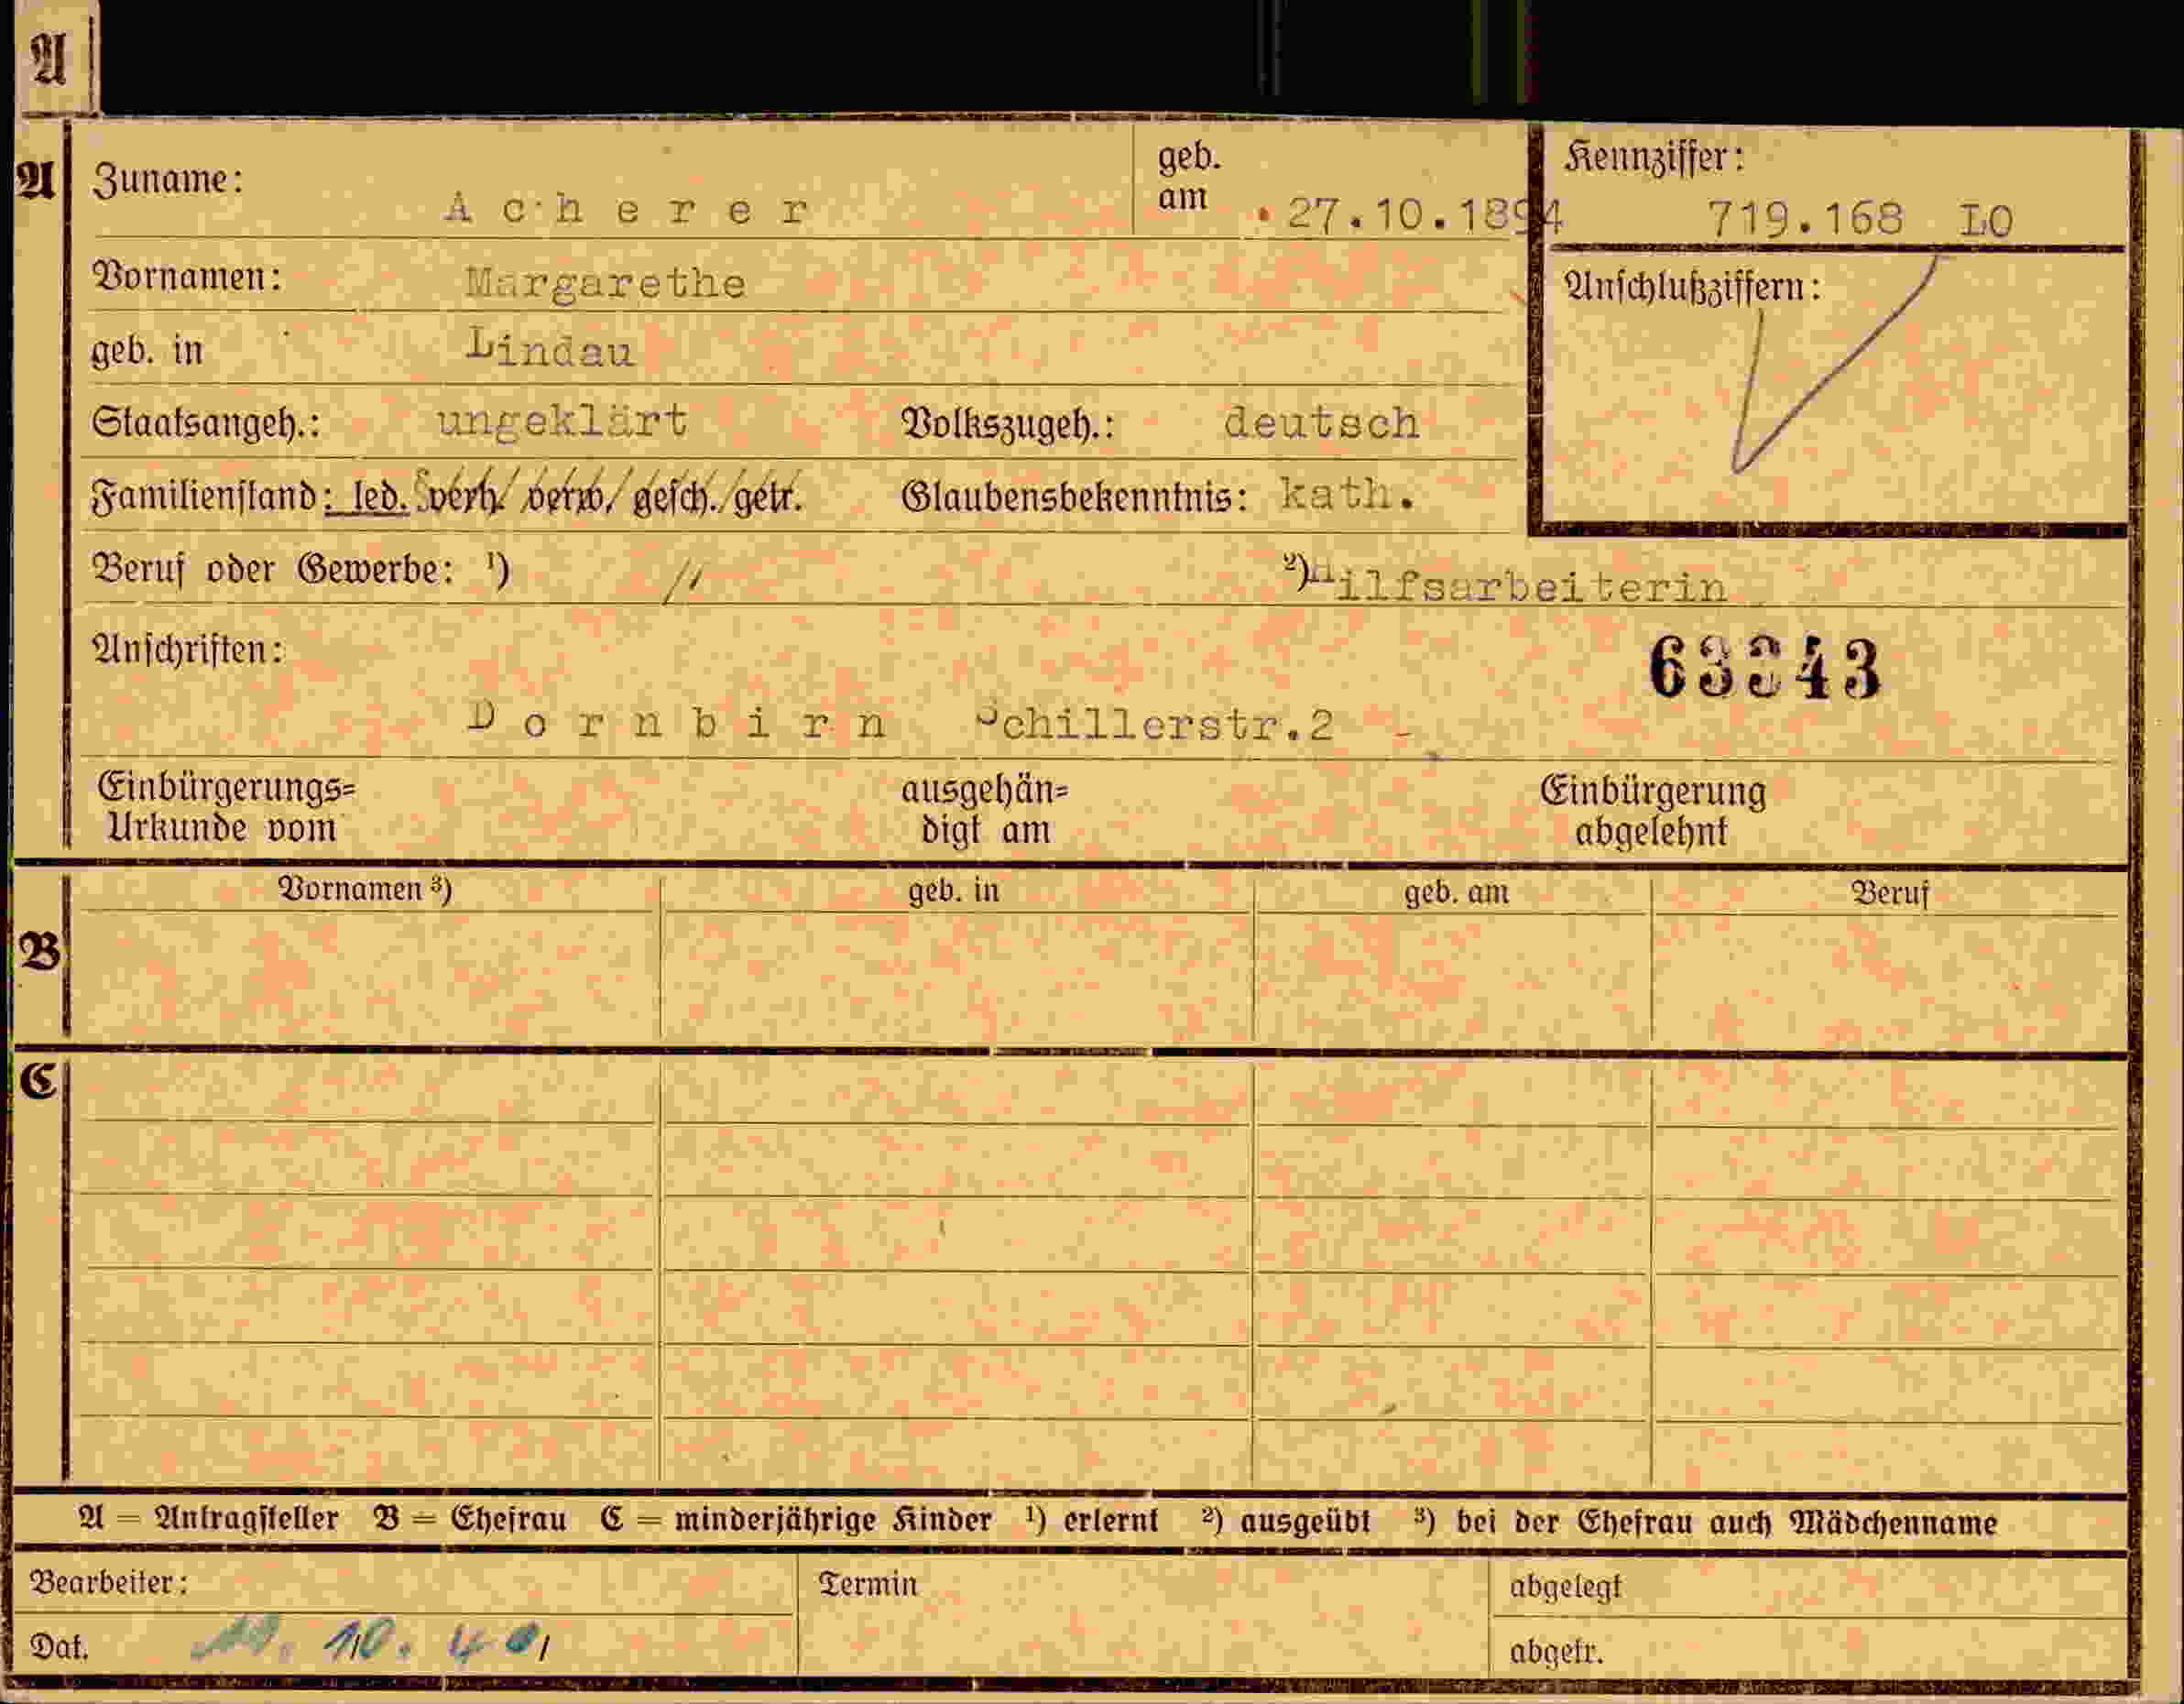 A
A Zuname: Acherer geb. am 27.10.1894 Kennziffer: 719.168 LO
Vornamen: Margarethe Anschlußziffern:
geb. in Lindau
Staatsangeh.: ungeklärt Volkszugeh.: deutsch
Familienstand: led. verh. verw. gesch. getr. Glaubensbekenntnis: kath.
Beruf oder Gewerbe: ¹) // ²) Hilfsarbeiterin
Anschriften: 63343
Dornbirn Schillerstr.2 -
Einbürgerungs= ausgehän= Einbürgerung
Urkunde vom digt am abgelehnt
Vornamen ³) geb. in geb. am Beruf
B
C
A = Antragsteller B = Ehefrau C = minderjährige Kinder ¹) erlernt ²) ausgeübt ³) bei der Ehefrau auch Mädchenname
Bearbeiter: Termin abgelegt
Dat. 10. abgetr.